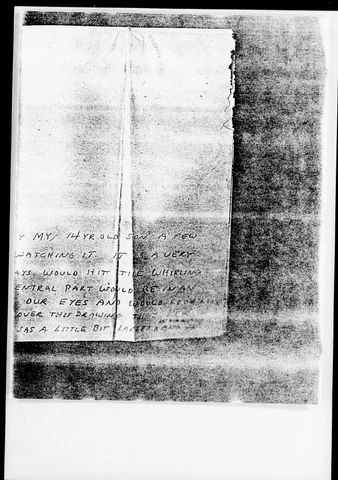 Y MY 14 YR. OLD SON A FEW
WATCHING IT. IT A VERY
AYS WOULD HIT THE WHIRLING
ENTRAL PART WOULD BE IN AN
OUR EYES AND WOULD LOOK LIKE
OVER THIS DRAWING
WAS A LITTLE BIT LARGER